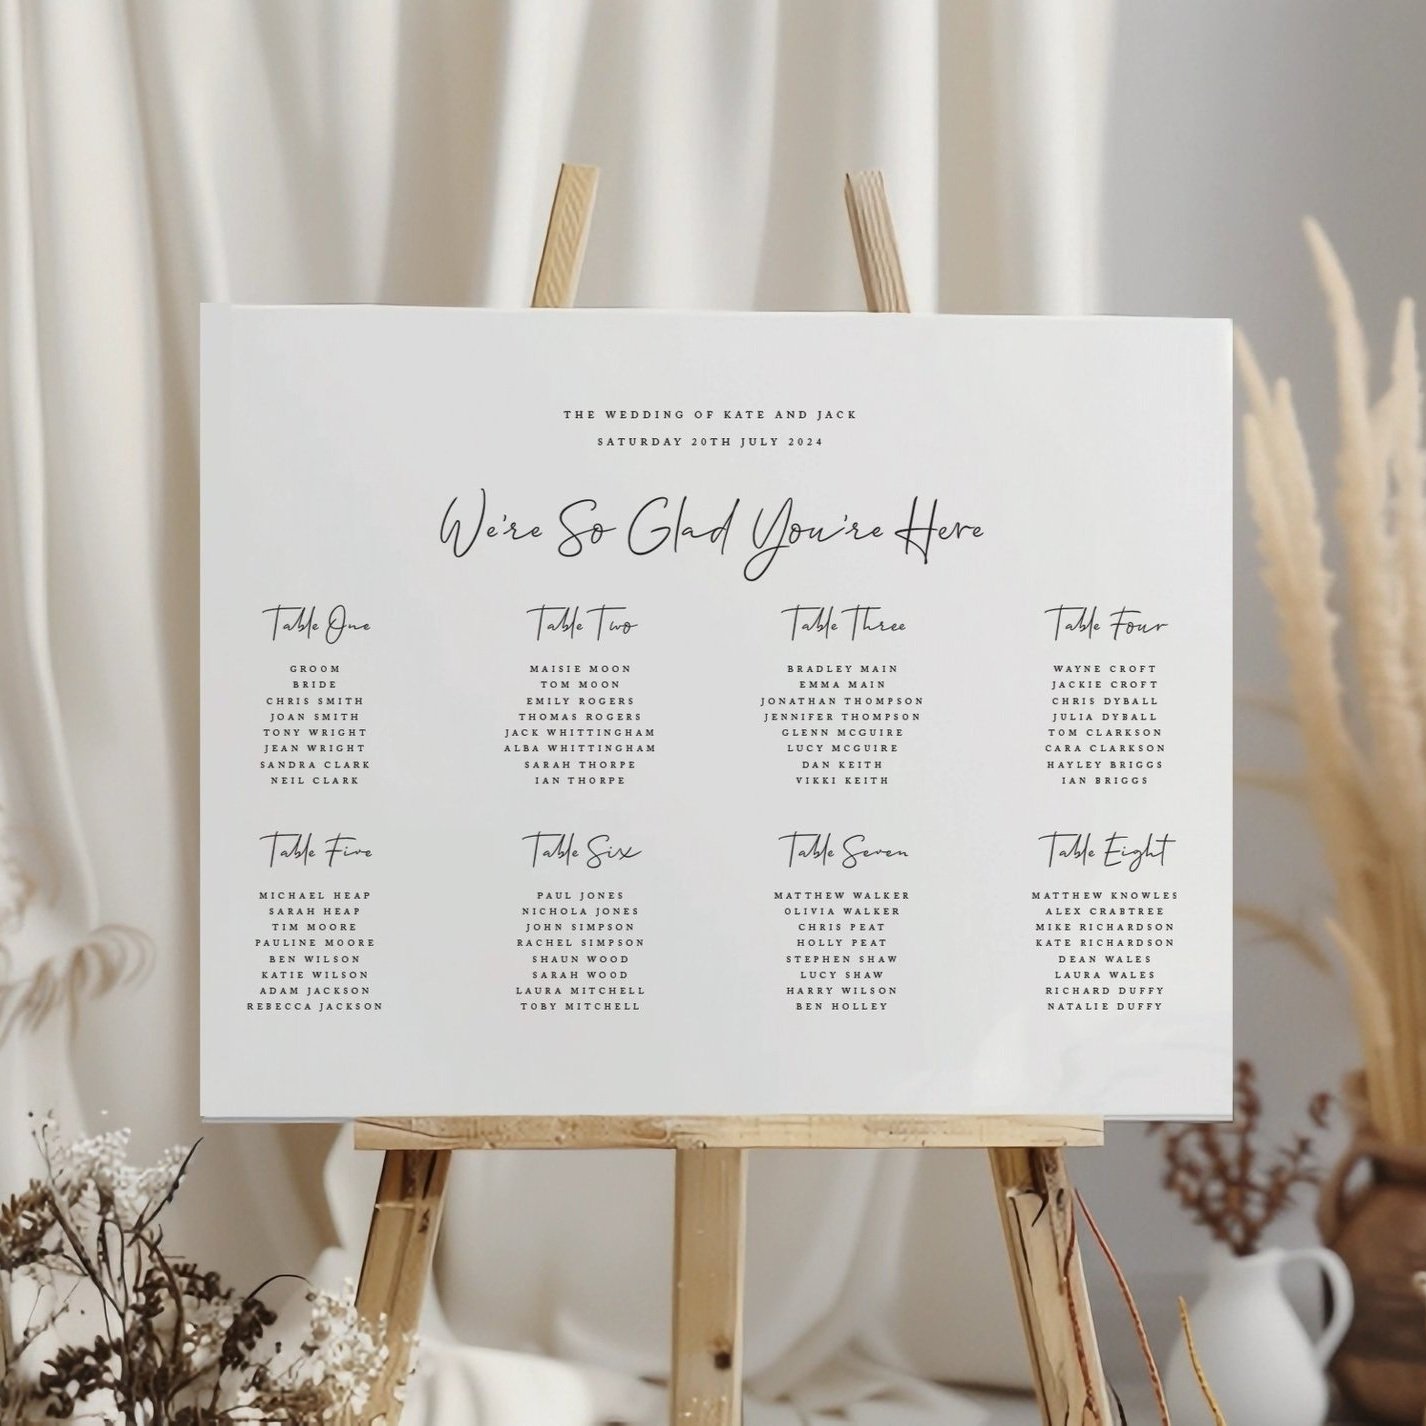 THE WEDDING OF KATE AND JACK
SATURDAY 20TH JULY 2024
We're So Glad You're Here
Table One
GROOM
BRIDE
CHRIS SMITH
JOAN SMITH
TONY WRIGHT
JEAN WRIGHT
SANDRA CLARK
NEIL CLARK
Table Two
MAISIE MOON
TOM MOON
EMILY ROGERS
THOMAS ROGERS
JACK WHITTINGHAM
ALBA WHITTINGHAM
SARAH THORPE
IAN THORPE
Table Three
BRADLEY MAIN
EMMA MAIN
JONATHAN THOMPSON
JENNIFER THOMPSON
GLENN MCGUIRE
LUCY MCGUIRE
DAN KEITH
VIKKI KEITH
Table Four
WAYNE CROFT
JACKIE CROFT
CHRIS DYBALL
JULIA DYBALL
TOM CLARKSON
CARA CLARKSON
HAYLEY BRIGGS
IAN BRIGGS
Table Five
MICHAEL HEAP
SARAH HEAP
TIM MOORE
PAULINE MOORE
BEN WILSON
KATIE WILSON
ADAM JACKSON
REBECCA JACKSON
Table Six
PAUL JONES
NICHOLA JONES
JOHN SIMPSON
RACHEL SIMPSON
SHAUN WOOD
SARAH WOOD
LAURA MITCHELL
TOBY MITCHELL
Table Seven
MATTHEW WALKER
OLIVIA WALKER
CHRIS PEAT
HOLLY PEAT
STEPHEN SHAW
LUCY SHAW
HARRY WILSON
BEN HOLLEY
Table Eight
MATTHEW KNOWLES
ALEX CRABTREE
MIKE RICHARDSON
KATE RICHARDSON
DEAN WALES
LAURA WALES
RICHARD DUFFY
NATALIE DUFFY